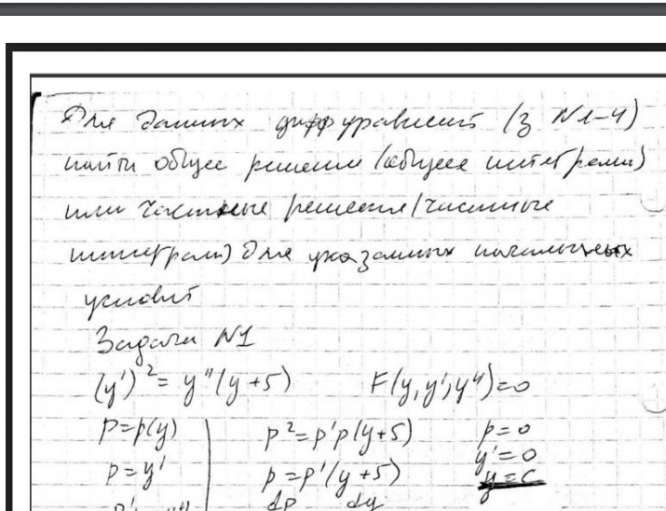 Для данных дифф уравнений (з N1-4)
найти общее решение (общие интегралы)
или частные решения (частные
интегралы) для указанных начальных
условий
Задача N1
(y')² = y''(y+5) F(y,y',y'')=0
p=p(y) p²=p'p(y+5) p=0
p=y' p=p'(y+5) y'=0
y=c
dp dy